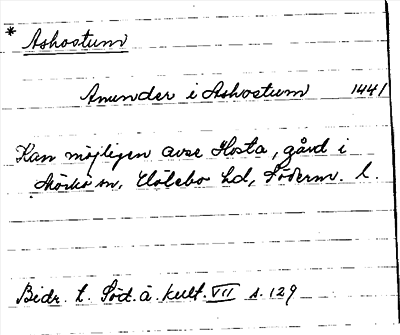 * Ashostum
Anunder i Ashostum 1441
Kan möjligen avse Hosta, gård i
Mörkö sn, Hölebo hd, Söderm. l.
Bidr. t. Söd. ä. kult. VII s. 129